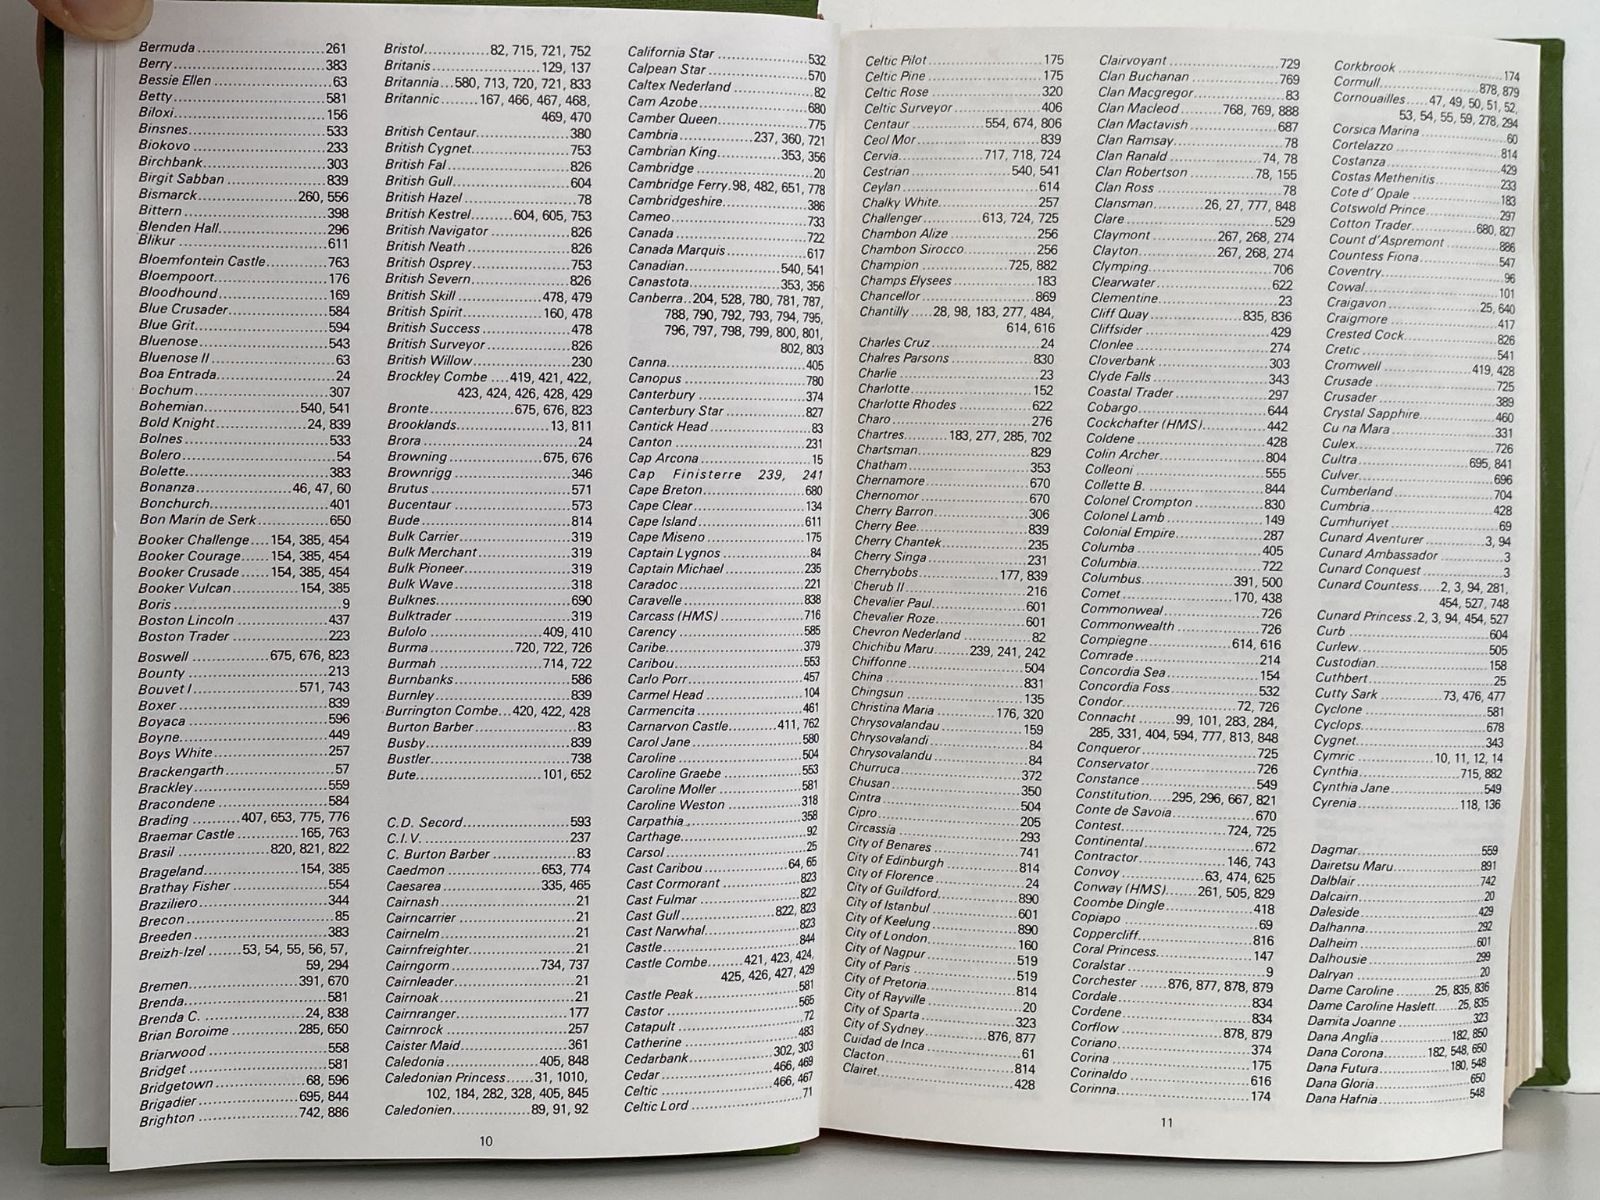 Bermuda ........................ 261
Berry ........................ 383
Bessie Ellen ........................ 63
Betty ........................ 581
Biloxi ........................ 156
Binsnes ........................ 533
Biokovo ........................ 233
Birchbank ........................ 303
Birgit Sabban ........................ 839
Bismarck ........................ 260, 556
Bittern ........................ 398
Blenden Hall ........................ 296
Blikur ........................ 611
Bloemfontein Castle ........................ 763
Bloempoort ........................ 176
Bloodhound ........................ 169
Blue Crusader ........................ 584
Blue Grit ........................ 594
Bluenose ........................ 543
Bluenose II ........................ 63
Boa Entrada ........................ 24
Bochum ........................ 307
Bohemian ........................ 540, 541
Bold Knight ........................ 24, 839
Bolnes ........................ 533
Bolero ........................ 54
Bolette ........................ 383
Bonanza ........................ 46, 47, 60
Bonchurch ........................ 401
Bon Marin de Serk ........................ 650
Booker Challenge .... 154, 385, 454
Booker Courage ..... 154, 385, 454
Booker Crusade ...... 154, 385, 454
Booker Vulcan ............. 154, 385
Boris ........................ 9
Boston Lincoln ........................ 437
Boston Trader ........................ 223
Boswell ............... 675, 676, 823
Bounty ........................ 213
Bouvet I ........................ 571, 743
Boxer ........................ 839
Boyaca ........................ 596
Boyne ........................ 449
Boys White ........................ 257
Brackengarth ........................ 57
Brackley ........................ 559
Bracondene ........................ 584
Brading .......... 407, 653, 775, 776
Braemar Castle ............. 165, 763
Brasil .................. 820, 821, 822
Brageland ........................ 154, 385
Brathay Fisher ........................ 554
Braziliero ........................ 344
Brecon ........................ 85
Breeden ........................ 383
Breizh-Izel ....... 53, 54, 55, 56, 57,
59, 294
Bremen ........................ 391, 670
Brenda ........................ 581
Brenda C. ........................ 24, 838
Brian Boroime ............. 285, 650
Briarwood ........................ 558
Bridget ........................ 581
Bridgetown ........................ 68, 596
Brigadier ........................ 695, 844
Brighton ........................ 742, 886
Bristol ............. 82, 715, 721, 752
Britanis ........................ 129, 137
Britannia ... 580, 713, 720, 721, 833
Britannic ..... 167, 466, 467, 468,
469, 470
British Centaur ........................ 380
British Cygnet ........................ 753
British Fal ........................ 826
British Gull ........................ 604
British Hazel ........................ 78
British Kestrel ........ 604, 605, 753
British Navigator ........................ 826
British Neath ........................ 826
British Osprey ........................ 753
British Severn ........................ 826
British Skill ........................ 478, 479
British Spirit ........................ 160, 478
British Success ........................ 478
British Surveyor ........................ 826
British Willow ........................ 230
Brockley Combe .... 419, 421, 422,
423, 424, 426, 428, 429
Bronte ................ 675, 676, 823
Brooklands ........................ 13, 811
Brora ........................ 24
Browning ........................ 675, 676
Brownrigg ........................ 346
Brutus ........................ 571
Bucentaur ........................ 573
Bude ........................ 814
Bulk Carrier ........................ 319
Bulk Merchant ........................ 319
Bulk Pioneer ........................ 319
Bulk Wave ........................ 318
Bulknes ........................ 690
Bulktrader ........................ 319
Bulolo ........................ 409, 410
Burma ................ 720, 722, 726
Burmah ........................ 714, 722
Burnbanks ........................ 586
Burnley ........................ 839
Burrington Combe ... 420, 422, 428
Burton Barber ........................ 83
Busby ........................ 839
Bustler ........................ 738
Bute ........................ 101, 652
C.D. Secord ........................ 593
C.I.V. ........................ 237
C. Burton Barber ........................ 83
Caedmon ........................ 653, 774
Caesarea ........................ 335, 465
Cairnash ........................ 21
Cairncarrier ........................ 21
Cairnelm ........................ 21
Cairnfreighter ........................ 21
Cairngorm ........................ 734, 737
Cairnleader ........................ 21
Cairnoak ........................ 21
Cairnranger ........................ 177
Cairnrock ........................ 257
Caister Maid ........................ 361
Caledonia ........................ 405, 848
Caledonian Princess ...... 31, 1010,
102, 184, 282, 328, 405, 845
Caledonien ................ 89, 91, 92
10
California Star ........................ 532
Calpean Star ........................ 570
Caltex Nederland ........................ 82
Cam Azobe ........................ 680
Camber Queen ........................ 775
Cambria ................ 237, 360, 721
Cambrian King ............. 353, 356
Cambridge ........................ 20
Cambridge Ferry . 98, 482, 651, 778
Cambridgeshire ........................ 386
Cameo ........................ 733
Canada ........................ 722
Canada Marquis ........................ 617
Canadian ........................ 540, 541
Canastota ........................ 353, 356
Canberra .. 204, 528, 780, 781, 787,
788, 790, 792, 793, 794, 795,
796, 797, 798, 799, 800, 801,
802, 803
Canna ........................ 405
Canopus ........................ 780
Canterbury ........................ 374
Canterbury Star ........................ 827
Cantick Head ........................ 83
Canton ........................ 231
Cap Arcona ........................ 15
Cap Finisterre 239, 241
Cape Breton ........................ 680
Cape Clear ........................ 134
Cape Island ........................ 611
Cape Miseno ........................ 175
Captain Lygnos ........................ 84
Captain Michael ........................ 235
Caradoc ........................ 221
Caravelle ........................ 838
Carcass (HMS) ........................ 716
Carency ........................ 585
Caribe ........................ 379
Caribou ........................ 553
Carlo Porr ........................ 457
Carmel Head ........................ 104
Carmencita ........................ 461
Carnarvon Castle ........... 411, 762
Carol Jane ........................ 580
Caroline ........................ 504
Caroline Graebe ........................ 553
Caroline Moller ........................ 581
Caroline Weston ........................ 318
Carpathia ........................ 358
Carthage ........................ 92
Carsol ........................ 25
Cast Caribou ........................ 64, 65
Cast Cormorant ........................ 823
Cast Fulmar ........................ 822
Cast Gull ........................ 822, 823
Cast Narwhal ........................ 823
Castle ........................ 844
Castle Combe ........ 421, 423, 424,
425, 426, 427, 429
Castle Peak ........................ 581
Castor ........................ 565
Catapult ........................ 72
Catherine ........................ 483
Cedarbank ........................ 302, 303
Cedar ........................ 466, 469
Celtic ........................ 466, 467
Celtic Lord ........................ 71
Celtic Pilot ........................ 175
Celtic Pine ........................ 175
Celtic Rose ........................ 320
Celtic Surveyor ........................ 406
Centaur ................ 554, 674, 806
Ceol Mor ........................ 839
Cervia ................ 717, 718, 724
Cestrian ........................ 540, 541
Ceylan ........................ 614
Chalky White ........................ 257
Challenger ............. 613, 724, 725
Chambon Alize ........................ 256
Chambon Sirocco ........................ 256
Champion ........................ 725, 882
Champs Elysees ........................ 183
Chancellor ........................ 869
Chantilly ....... 28, 98, 183, 277, 484,
614, 616
Charles Cruz ........................ 24
Chalres Parsons ........................ 830
Charlie ........................ 23
Charlotte ........................ 152
Charlotte Rhodes ........................ 622
Charo ........................ 276
Chartres ........ 183, 277, 285, 702
Chartsman ........................ 829
Chatham ........................ 353
Chernamore ........................ 670
Chernomor ........................ 670
Cherry Barron ........................ 306
Cherry Bee ........................ 839
Cherry Chantek ........................ 235
Cherry Singa ........................ 231
Cherrybobs ........................ 177, 839
Cherub II ........................ 216
Chevalier Paul ........................ 601
Chevalier Roze ........................ 601
Chevron Nederland ........................ 82
Chichibu Maru ....... 239, 241, 242
Chiffonne ........................ 504
China ........................ 831
Chingsun ........................ 135
Christina Maria ............. 176, 320
Chrysovalandau ........................ 159
Chrysovalandi ........................ 84
Chrysovalandu ........................ 84
Churruca ........................ 372
Chusan ........................ 350
Cintra ........................ 504
Cipro ........................ 205
Circassia ........................ 293
City of Benares ........................ 741
City of Edinburgh ........................ 814
City of Florence ........................ 24
City of Guildford ........................ 890
City of Istanbul ........................ 601
City of Keelung ........................ 890
City of London ........................ 160
City of Nagpur ........................ 519
City of Paris ........................ 519
City of Pretoria ........................ 814
City of Rayville ........................ 20
City of Sparta ........................ 323
City of Sydney ............. 876, 877
Cuidad de Inca ........................ 61
Clacton ........................ 814
Clairet ........................ 428
Clairvoyant ........................ 729
Clan Buchanan ........................ 769
Clan Macgregor ........................ 83
Clan Macleod ........ 768, 769, 888
Clan Mactavish ........................ 687
Clan Ramsay ........................ 78
Clan Ranald ........................ 74, 78
Clan Robertson ............. 78, 155
Clan Ross ........................ 78
Clansman ........... 26, 27, 777, 848
Clare ........................ 529
Claymont ............. 267, 268, 274
Clayton ................ 267, 268, 274
Clymping ........................ 706
Clearwater ........................ 622
Clementine ........................ 23
Cliff Quay ........................ 835, 836
Cliffsider ........................ 429
Clonlee ........................ 274
Cloverbank ........................ 303
Clyde Falls ........................ 343
Coastal Trader ........................ 297
Cobargo ........................ 644
Cockchafter (HMS) ........................ 442
Coldene ........................ 428
Colin Archer ........................ 804
Colleoni ........................ 555
Collette B. ........................ 844
Colonel Crompton ........................ 830
Colonel Lamb ........................ 149
Colonial Empire ........................ 287
Columba ........................ 405
Columbia ........................ 722
Columbus ........................ 391, 500
Comet ........................ 170, 438
Commonweal ........................ 726
Commonwealth ........................ 726
Compiegne ........................ 614, 616
Comrade ........................ 214
Concordia Sea ........................ 154
Concordia Foss ........................ 532
Condor ........................ 72, 726
Connacht ....... 99, 101, 283, 284,
285, 331, 404, 594, 777, 813, 848
Conqueror ........................ 725
Conservator ........................ 726
Constance ........................ 549
Constitution ..... 295, 296, 667, 821
Conte de Savoia ........................ 670
Contest ........................ 724, 725
Continental ........................ 672
Contractor ........................ 146, 743
Convoy ................ 63, 474, 625
Conway (HMS) ....... 261, 505, 829
Coombe Dingle ........................ 418
Copiapo ........................ 69
Coppercliff ........................ 816
Coral Princess ........................ 147
Coralstar ........................ 9
Corchester ...... 876, 877, 878, 879
Cordale ........................ 834
Cordene ........................ 834
Corflow ........................ 878, 879
Coriano ........................ 374
Corina ........................ 175
Corinaldo ........................ 616
Corinna ........................ 174
11
Corkbrook ........................ 174
Cormull ........................ 878, 879
Cornouailles .... 47, 49, 50, 51, 52,
53, 54, 55, 59, 278, 294
Corsica Marina ........................ 60
Cortelazzo ........................ 814
Costanza ........................ 429
Costas Methenitis ........................ 233
Cote d' Opale ........................ 183
Cotswold Prince ........................ 297
Cotton Trader ............. 680, 827
Count d'Aspremont ........................ 886
Countess Fiona ........................ 547
Coventry ........................ 96
Cowal ........................ 101
Craigavon ........................ 25, 640
Craigmore ........................ 417
Crested Cock ........................ 826
Cretic ........................ 541
Cromwell ........................ 419, 428
Crusade ........................ 725
Crusader ........................ 389
Crystal Sapphire ........................ 460
Cu na Mara ........................ 331
Culex ........................ 726
Cultra ........................ 695, 841
Culver ........................ 696
Cumberland ........................ 704
Cumbria ........................ 428
Cumhuriyet ........................ 69
Cunard Aventurer ............. 3, 94
Cunard Ambassador ........................ 3
Cunard Conquest ........................ 3
Cunard Countess ..... 2, 3, 94, 281,
454, 527, 748
Cunard Princess . 2, 3, 94, 454, 527
Curb ........................ 604
Curlew ........................ 505
Custodian ........................ 158
Cuthbert ........................ 25
Cutty Sark ............. 73, 476, 477
Cyclone ........................ 581
Cyclops ........................ 678
Cygnet ........................ 343
Cymric ................ 10, 11, 12, 14
Cynthia ........................ 715, 882
Cynthia Jane ........................ 549
Cyrenia ........................ 118, 136
Dagmar ........................ 559
Dairetsu Maru ........................ 891
Dalblair ........................ 742
Dalcairn ........................ 20
Daleside ........................ 429
Dalhanna ........................ 292
Dalheim ........................ 601
Dalhousie ........................ 299
Dalryan ........................ 20
Dame Caroline ....... 25, 835, 836
Dame Caroline Haslett .... 25, 835
Damita Joanne ........................ 323
Dana Anglia ........................ 182, 850
Dana Corona .......... 182, 548, 650
Dana Futura ........................ 180, 548
Dana Gloria ........................ 650
Dana Hafnia ........................ 548